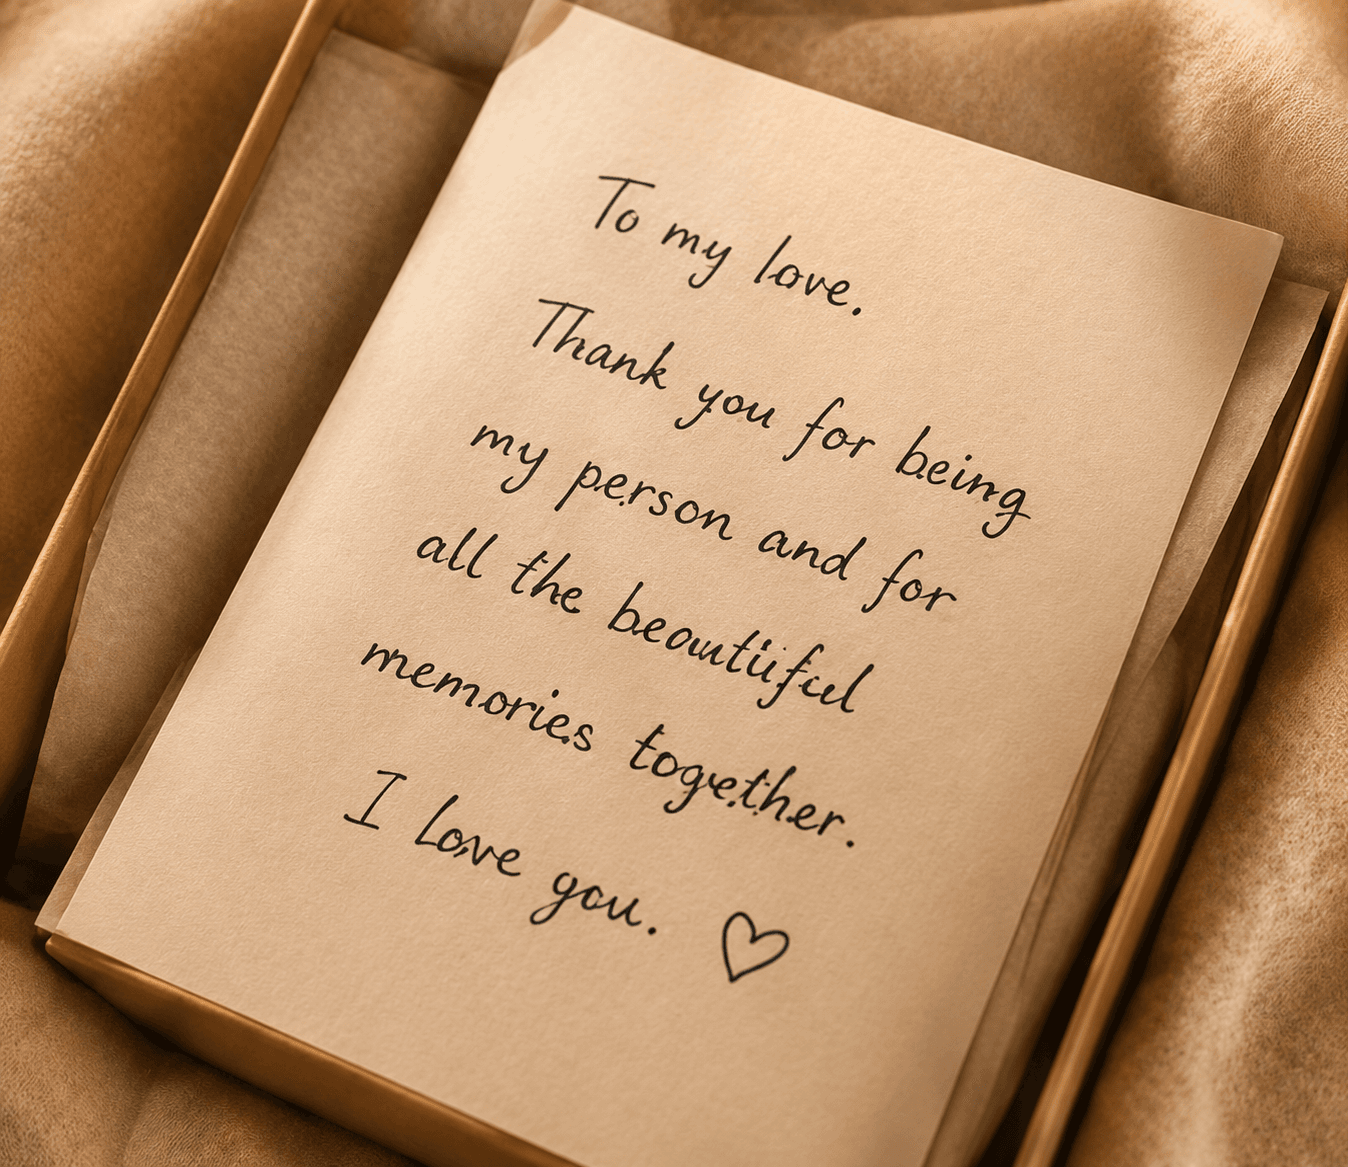 To my love.
Thank you for being
my person and for
all the beautiful
memories together.
I love you. ♡